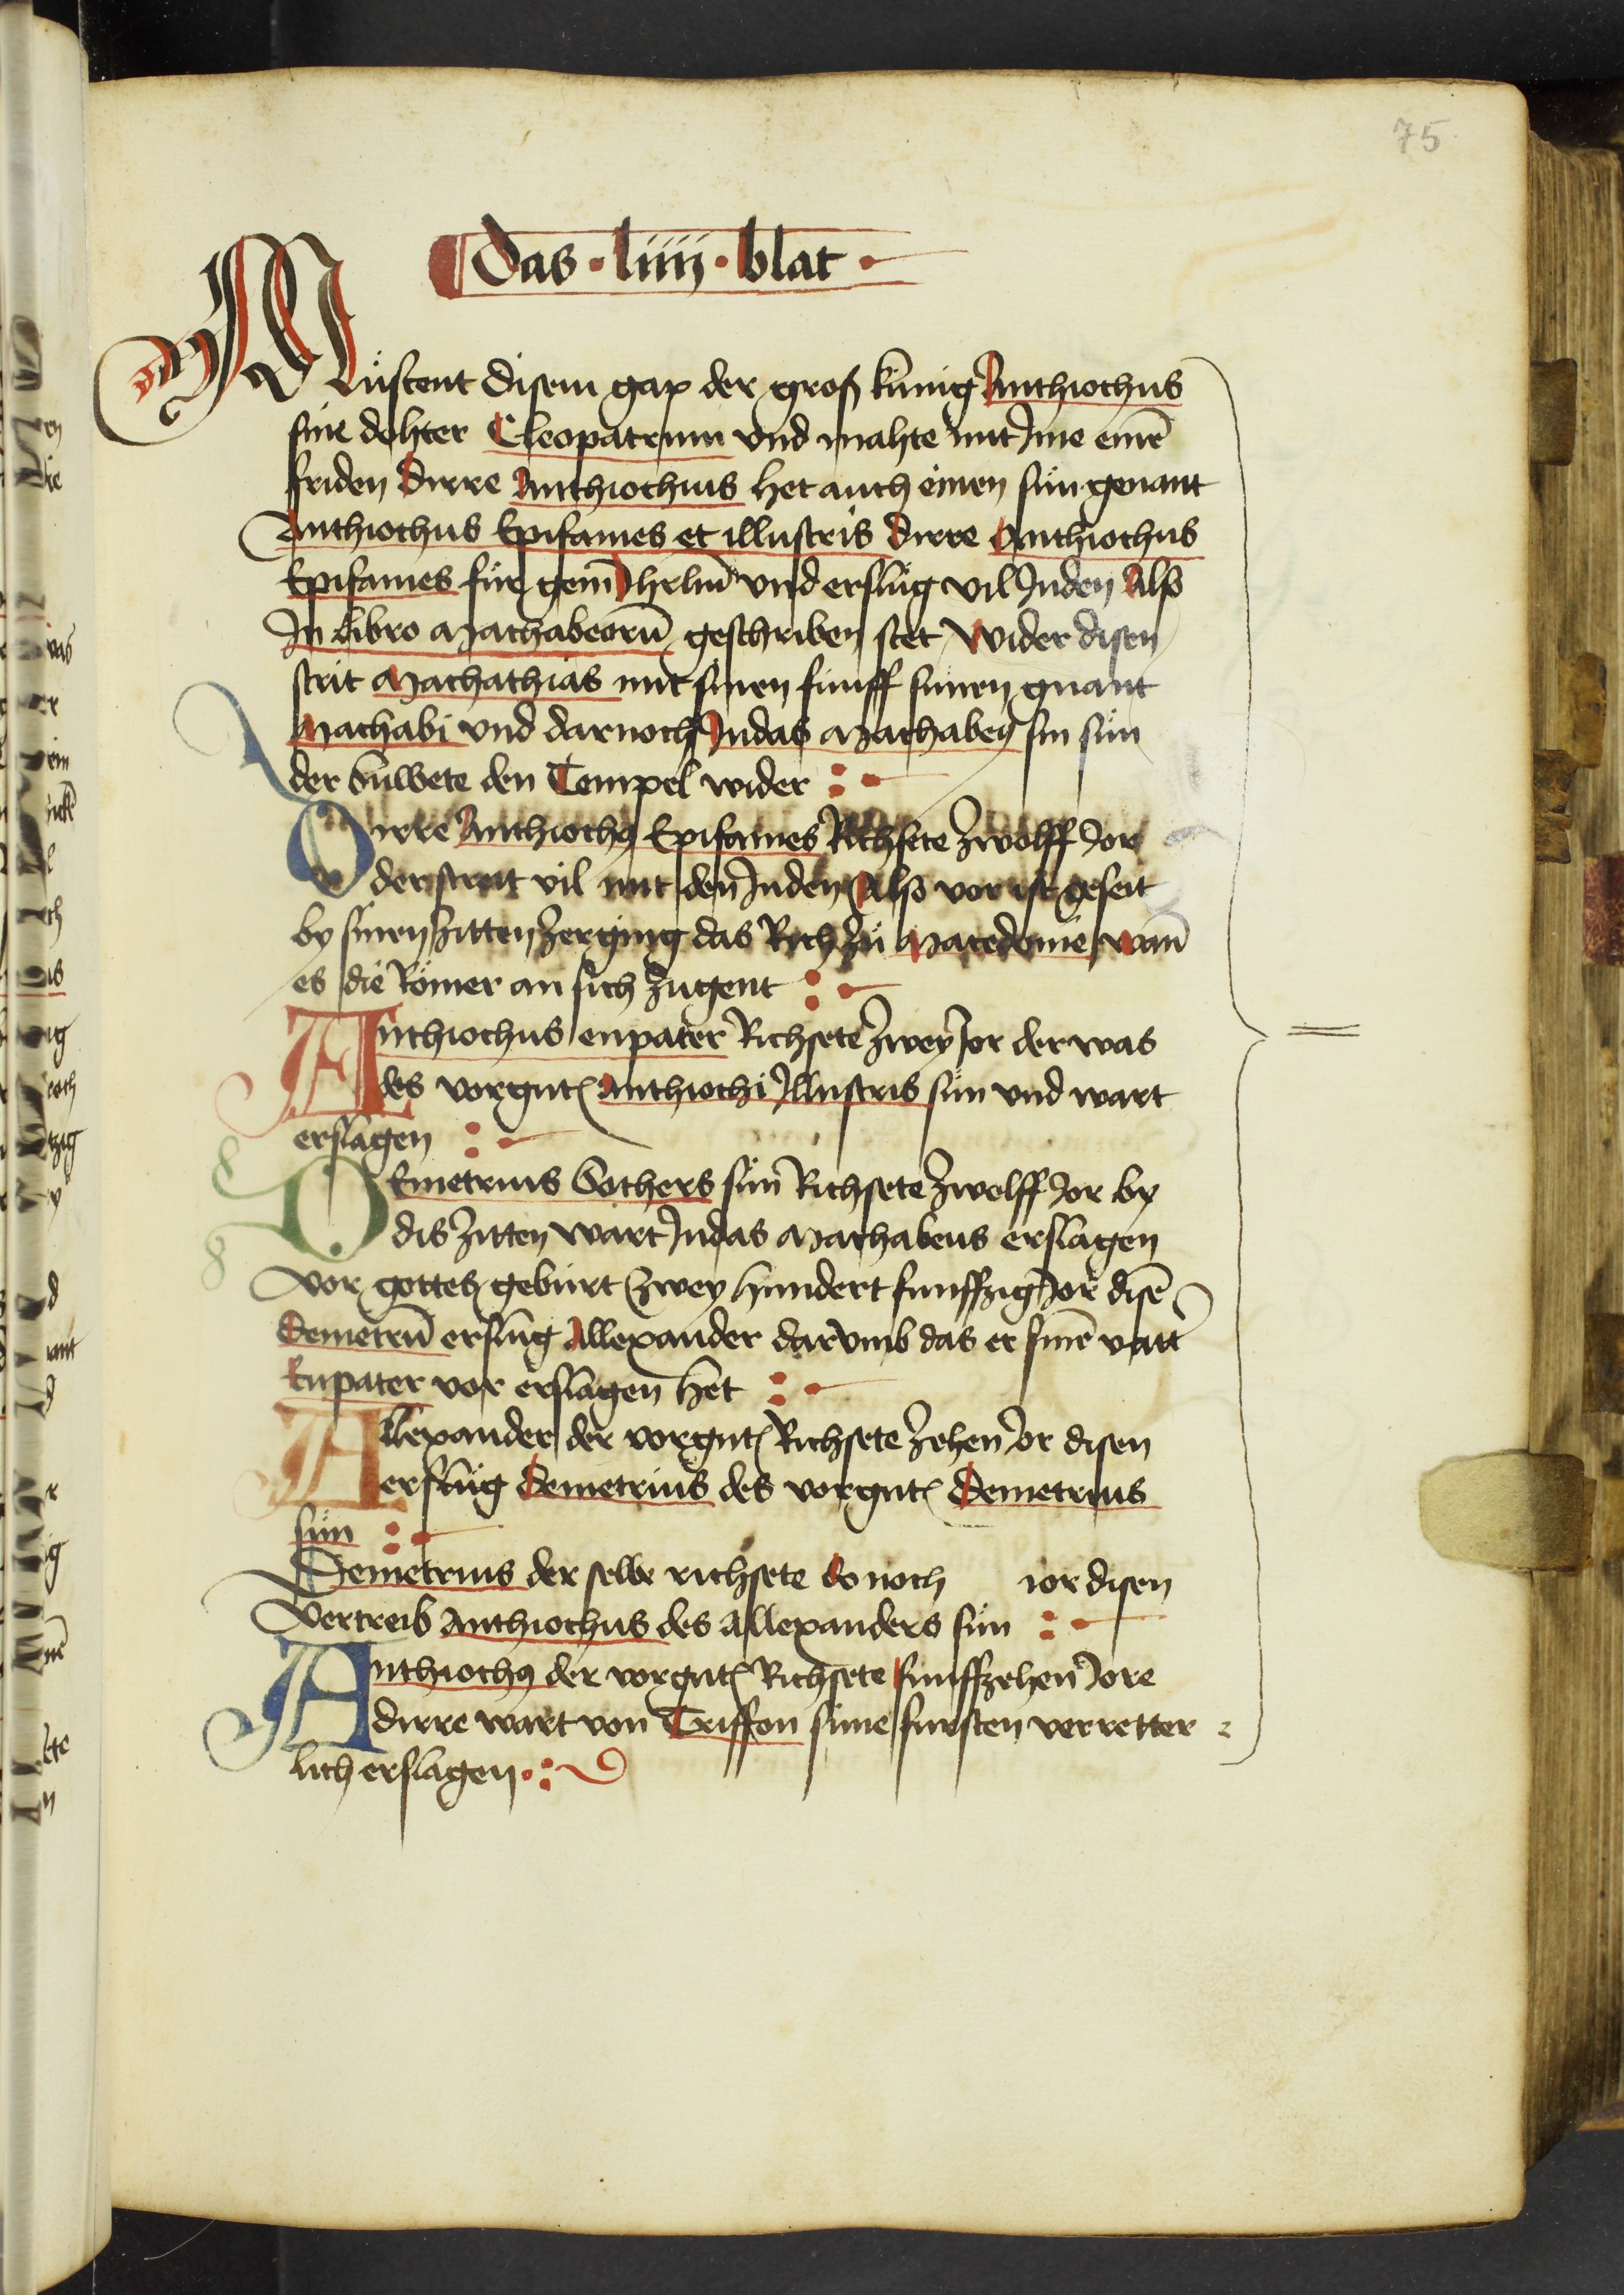 75
Das · liiij · blat ·
Müstent disem gap der groß künig Anthiochus
sine dohter Cleopatrum vnd mahte mit Ime einē
friden Dirre Anthiochus het auch einen sün genant
Anthiochus Epifanies et illustris Dirre Anthiochus
Epifanies für gein Jhrlm̄ vnd erslüg vil Juden Also
In libro Machabeorū geschriben stet Wider disen
strit Mathathias mit sinen fünff sünen gnant
Machabi vnd darnoch Judas Machabeꝰ sin sün
der buwete den Tempel wider
Dirre Anthiochꝰ Epifanies Richsete zwolff Jor
der streit vil mit den Juden Also vor ist geseit
by sinen zitten zerging das Rich zü Macedonie wañ
es die Römer an sich zugent
Anthiochus eupater Richsete zwey Jor der was
des vorgnt Anthiochi Illustris sün vnd wart
erslagen
Demetrius Sothers sün Richsete zwolff Jor by
dis zitten wart Judas Machabeus erslagen
vor gottes gebürt zwey hundert funffzig Jor disē
Demetrū erslüg Allexander darvmb das er sinē vatt
Eupater vor erslagen het
Allexander der vorgnt Richsete zehen Jor disen
erslüg Demetrius des vorgnt Demetrius
sün
Demetrius der selbe richsete do noch Jor disen
Vertreib Anthiochus des Allexanders sün
Anthiochꝰ der vorgnt Richsete funffzehen Jore
dirre wart von Triffon sime fursten verretter
lich erslagen